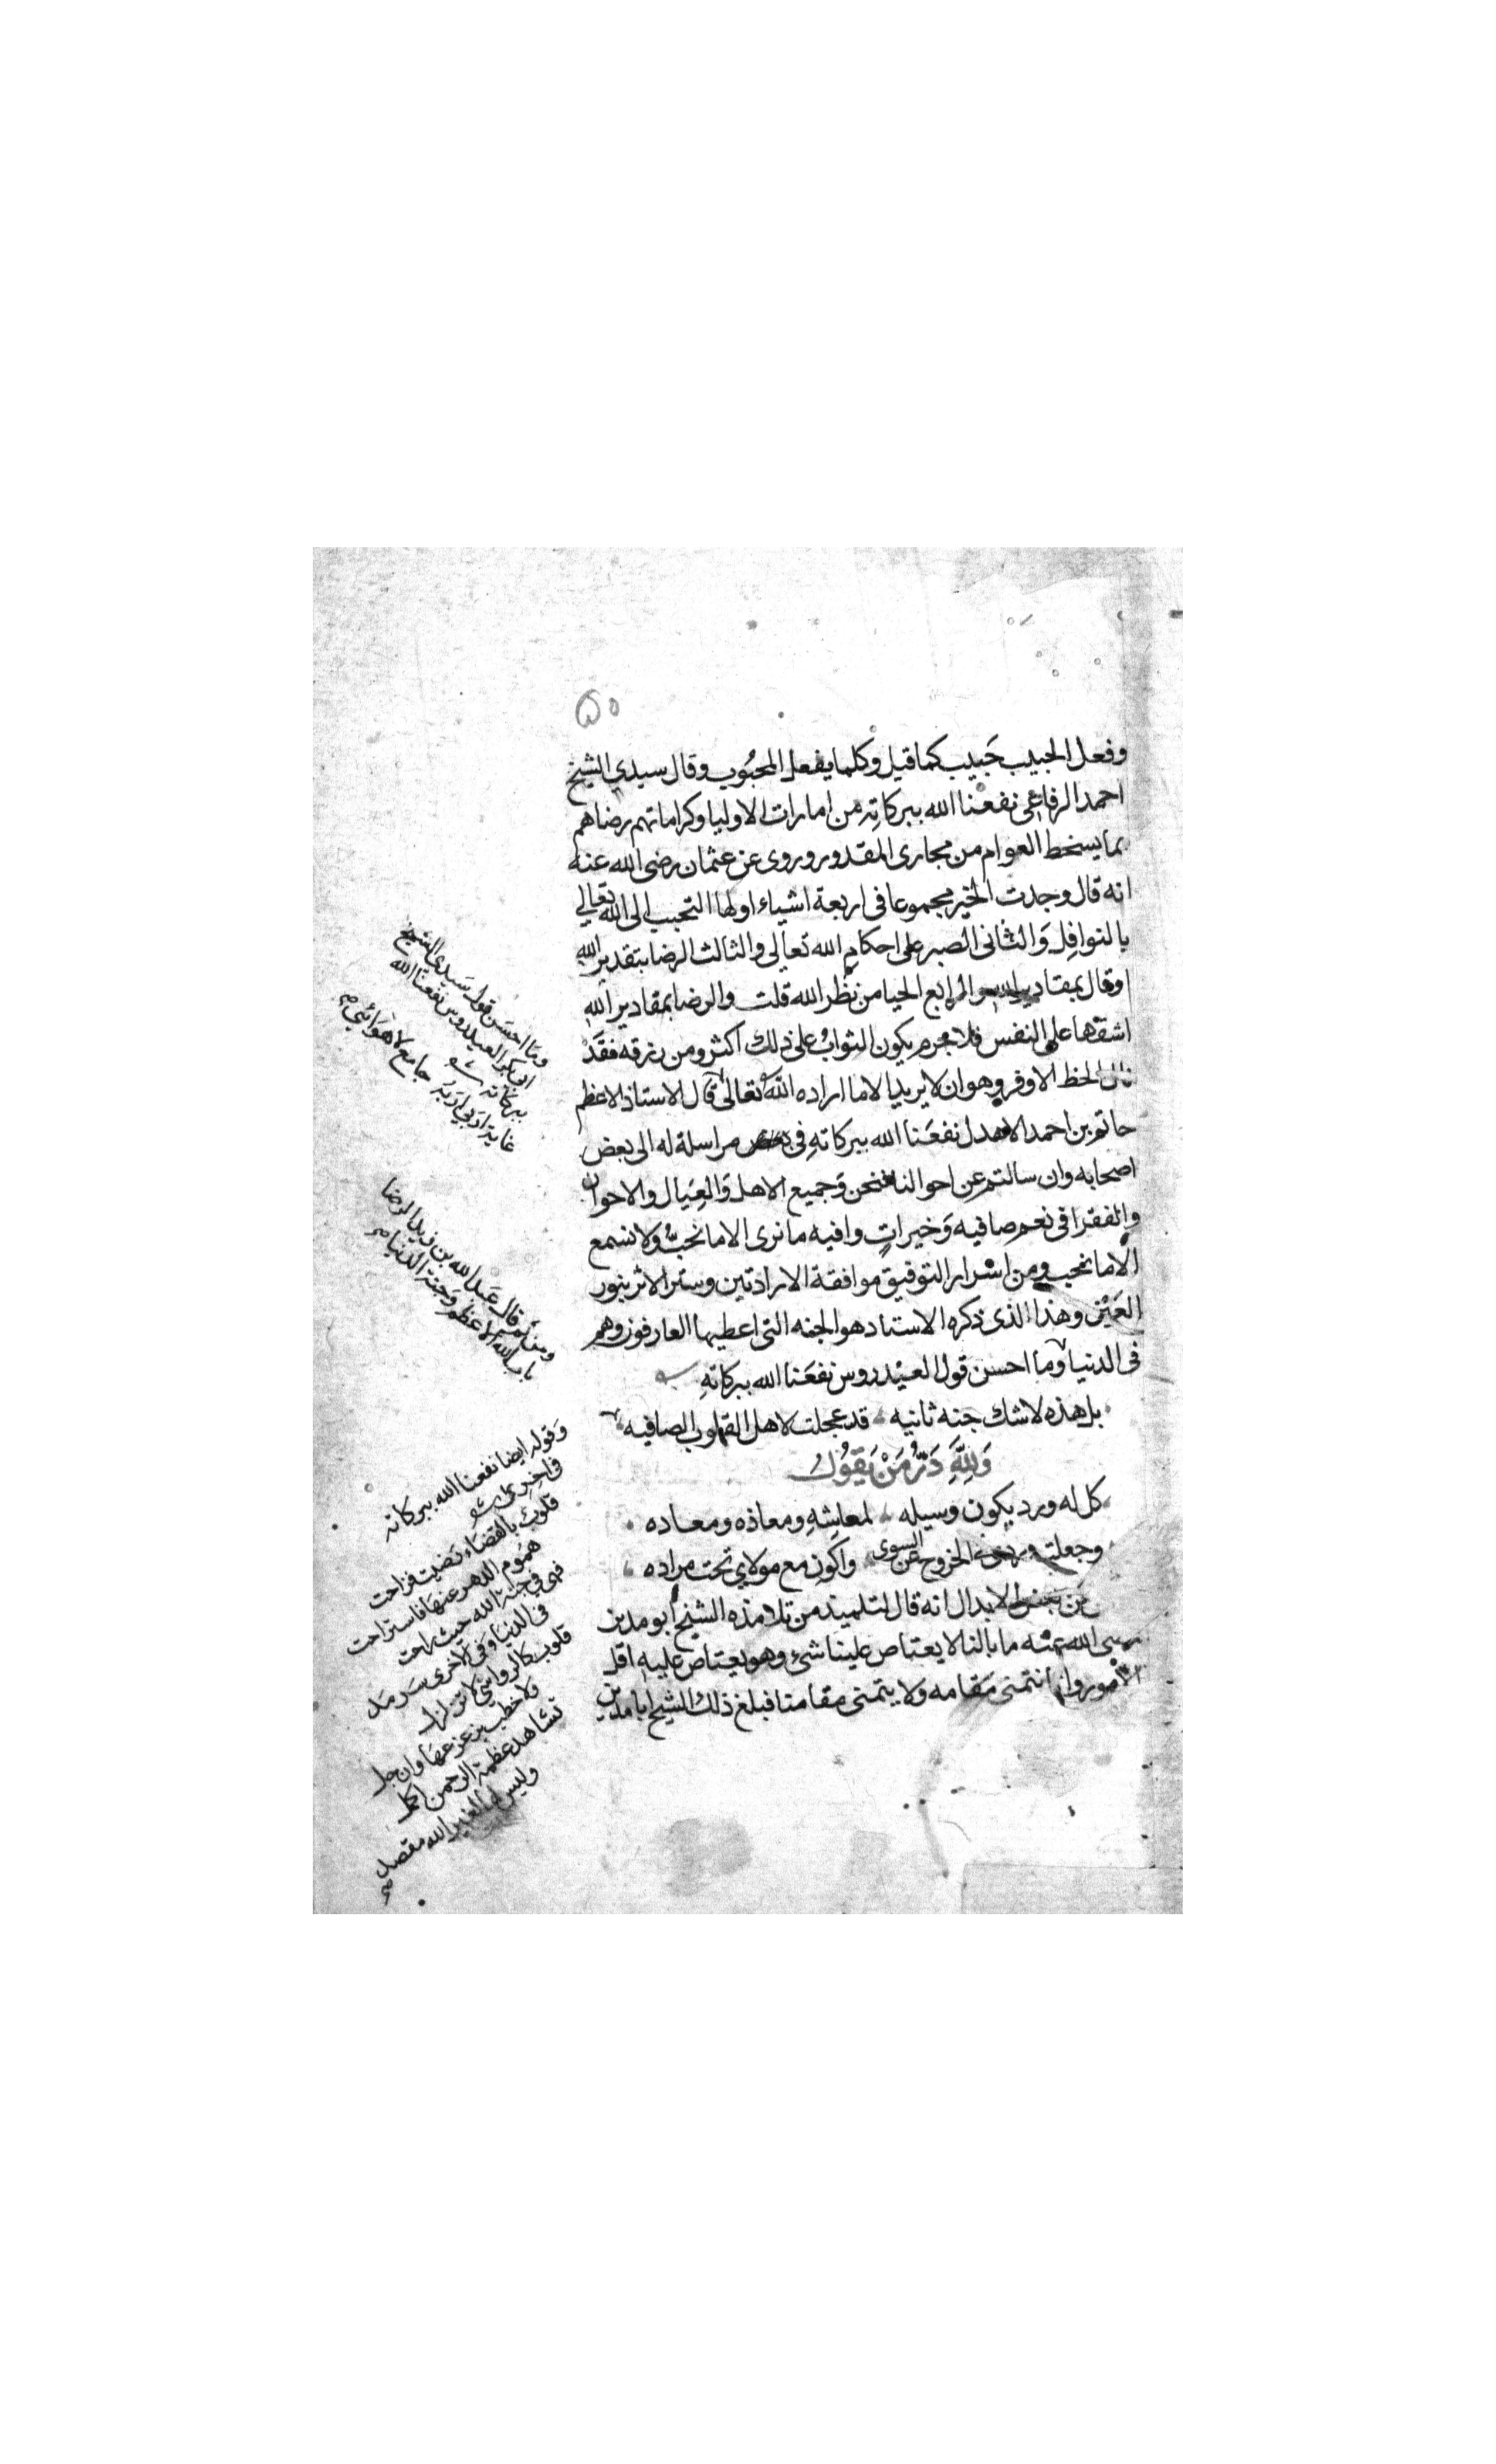 ٥٥
وفعل الحبيب حَبيب كما قيل وكلما يفعل المحبُوب وقال سيدي الشيخ
احمد الرفاعي نفعنا الله ببركاتِه من امارات الاوليا وكراماتهم رضاهم
بما يسخط العوام من مجارى المقدور وروى عن عثمان رضى الله عنه
انه قال وجدت الخير مجموعا فى اربعة اشياء اولها التحبب الى الله تعالي
بالنوافِل وَالثانى الصبر على احكامِ الله تعالى والثالث الرضا بتقدير الله
او قال بمقادير الله والرابع الحيا من نظر الله قلت والرضا بمقادير الله
اشقها على النفس فلا جرم يكون الثوابُ على ذلك اكثر ومن رزقه فقَدْ
نال الحظ الاوفر وهو ان لا يريد الا ما اراده الله تعالى قال الاستاذ الاعظم
حاتم بن احمد الاهدل نفعَنا الله ببركاتهِ فى بعض مراسلة له الى بعض
اصحابه وان سالتم عن احوالنا فنحن وَجميع الاهل وَالعِيَال والاخوان
والفقرا فى نعم صافيه وَخيراتٍ وافيه ما نرى الا ما نحبُّ ولا نسمع
الا ما نحب ومن اسْرار التوفيق موافقة الارادتين وستر الاثر بنور
العَيْن وهذا الذى ذكره الاستاد هو الجنه التى اعطيها العارفون وهم
فى الدنيا وما احسن قول العيْدروس نفعَنا الله ببركاتهِ
بل هذه لا شك جنه ثانيه قد عجلت لاهل القلوب الصافيه
وَلِلَّهِ دَرُّ مَنْ يَقوُل
كل له ورد يكون وسيله لمعاشِهِ ومعاذه ومعاده
وجعلت وردى الخروج عن السوى واكون مع مولاي تحت مراده
عَن بعض الابدال انه قال لتلميذ من تلامذه الشيخ ابو مدين
رضى الله عنه ما بالنا لا يعتاص علينا شئ وهو يعتاص عليه اقل
الامور وانا نتمنى مَقامه ولا يتمنى مقامنا فبلغ ذلك الشيخ ابا مدين
ومَا احسَن قول سَيدي الشيخ
ابى بكر العيدروس نفعنا الله
ببركاته
غاية اربي اربه جامع لاهوَائي
ومن ثم قال عَبد الله بن زيد الرضا
باب الله الاعظم وَجنة الدنيا
وَقوله ايضا نفعنا الله ببركاته
فى اخرى
قلوبٌ بالقضَاء رَضيت فراحت
همُوم الدهر عنهَا فاستراحت
فهى في جنة الله حيث راحت
فى الدنيا وَفى الاخرى سَرمَد
قلوب كالرواسي لا تزلزل
ولا خطب يزعزعهَا وان جل
تشاهد عظمة الرحمن اكمل
وليس لها لغير الله مقصد